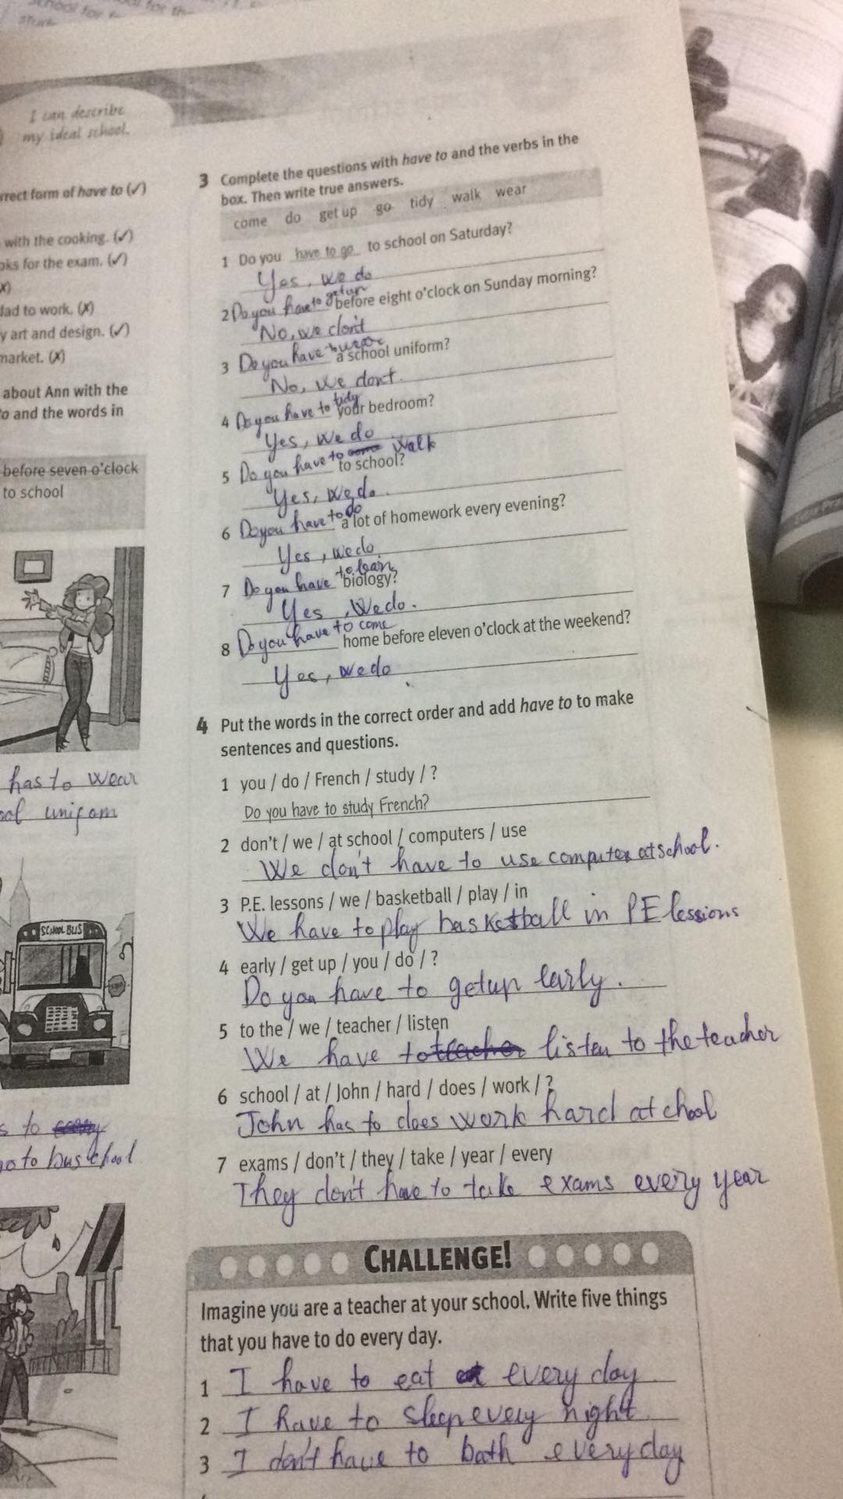 I can describe
my ideal school.
rrect form of have to (✓)
with the cooking. (✓)
oks for the exam. (✓)
✗)
dad to work. (✗)
y art and design. (✓)
market. (✗)
about Ann with the
o and the words in
before seven o'clock
to school
has to wear
ool unifom
SCHOOL BUS
s to
go to bus chool
3 Complete the questions with have to and the verbs in the
box. Then write true answers.
come do get up go tidy walk wear
1 Do you have to go to school on Saturday?
Yes, we do
2 Do you have to getup before eight o'clock on Sunday morning?
No, we don't
3 Do you have to wear a school uniform?
No, we dont.
4 Do you have to tidy your bedroom?
Yes, we do
5 Do you have to walk to school?
Yes, we do.
6 Do you have to do a lot of homework every evening?
Yes, we do
7 Do you have to learn biology?
Yes, We do.
8 Do you have to come home before eleven o'clock at the weekend?
Yes, we do.
4 Put the words in the correct order and add have to to make
sentences and questions.
1 you / do / French / study / ?
Do you have to study French?
2 don't / we / at school / computers / use
We don't have to use computer at school.
3 P.E. lessons / we / basketball / play / in
We have to play basketball in PE lessions
4 early / get up / you / do / ?
Do you have to getup early.
5 to the / we / teacher / listen
We have to teacher listen to the teacher
6 school / at / John / hard / does / work / ?
John has to does work hard at chool
7 exams / don't / they / take / year / every
They don't have to take exams every year
CHALLENGE!
Imagine you are a teacher at your school. Write five things
that you have to do every day.
1 I have to eat every day
2 I have to sleep every night
3 I don't have to bath everyday